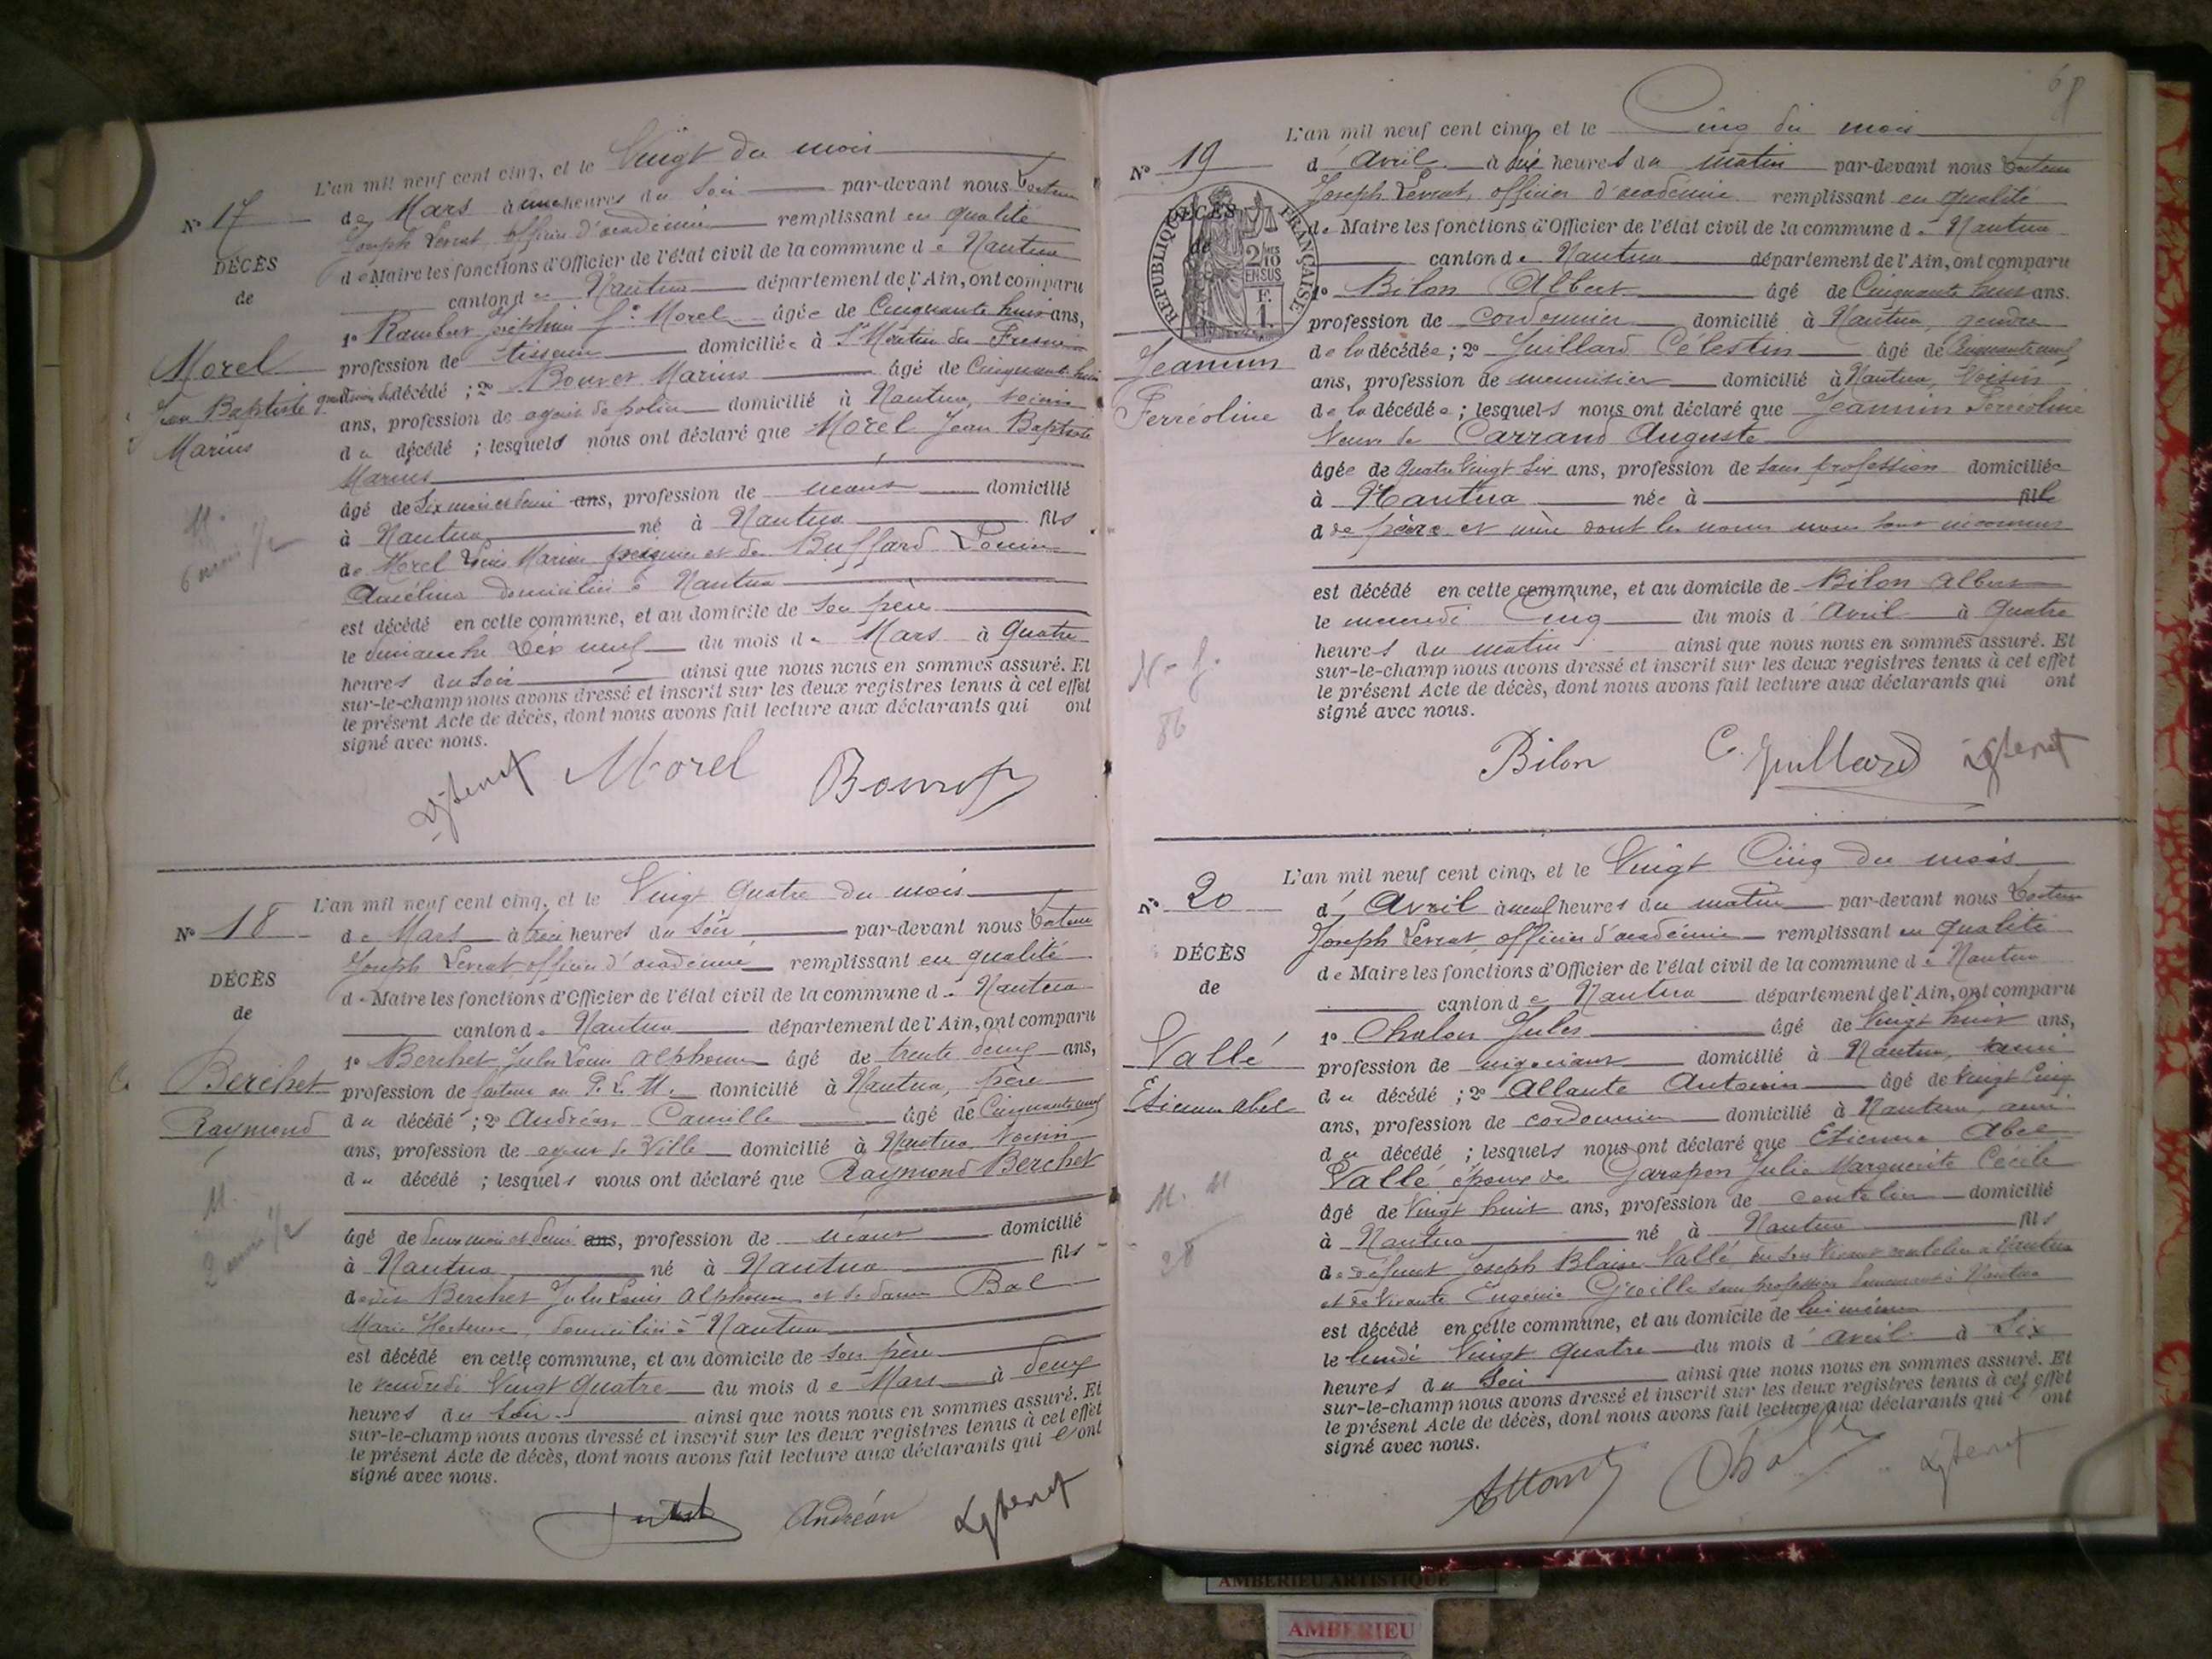 L'an mil neuf cent cinq, et le Vingt du mois
N° 17
de Mars à une heures du Soir par-devant nous Docteur
Joseph Levrat, officier d'académie remplissant en qualité
DÉCÈS
de Maire les fonctions d'Officier de l'état civil de la commune de Nantua
de
canton de Nantua département de l'Ain, ont comparu
1° Rambert Joséphine fe Morel âgée de Cinquante huit ans,
Morel
profession de tisseuse domiciliée à St Martin du Fresne
Jean Baptiste
grand'mère du décédé ; 2° Bouvet Marius âgé de Cinquante huit
Marius
ans, profession de agent de police domicilié à Nantua, voisin
du décédé ; lesquels nous ont déclaré que Morel Jean Baptiste
Marius
âgé de Six mois et demi ans, profession de néant domicilié
M.
6 mois 1/2
à Nantua né à Nantua fils
de Morel Louis Marius et de Buffard Louise
domiciliés à Nantua
est décédé en cette commune, et au domicile de son père
le dimanche Dix neuf du mois de Mars à Quatre
heures du Soir ainsi que nous nous en sommes assuré. Et
sur-le-champ nous avons dressé et inscrit sur les deux registres tenus à cet effet
le présent Acte de décès, dont nous avons fait lecture aux déclarants qui ont
signé avec nous.
Morel Bouvet
L'an mil neuf cent cinq, et le Vingt Quatre du mois
N° 18
de Mars à trois heures du Soir par-devant nous Docteur
Joseph Levrat officier d'académie remplissant en qualité
DÉCÈS
de Maire les fonctions d'Officier de l'état civil de la commune de Nantua
de
canton de Nantua département de l'Ain, ont comparu
1° Berchet Jules Louis Alphonse âgé de trente deux ans,
Berchet
profession de facteur au P. L. M. domicilié à Nantua, père
Raymond
du décédé ; 2° Andréan Camille âgé de Cinquante neuf
ans, profession de agent de Ville domicilié à Nantua Voisin
du décédé ; lesquels nous ont déclaré que Raymond Berchet
M.
2 mois 1/2
âgé de deux mois et demi ans, profession de néant domicilié
à Nantua né à Nantua fils
dudit Berchet Jules Louis Alphonse et de dame Bal
Marie Hortense, domiciliés à Nantua
est décédé en cette commune, et au domicile de son père
le vendredi Vingt Quatre du mois de Mars à deux
heures du Soir ainsi que nous nous en sommes assuré. Et
sur-le-champ nous avons dressé et inscrit sur les deux registres tenus à cet effet
le présent Acte de décès, dont nous avons fait lecture aux déclarants qui ont
signé avec nous.
Andréan
68
L'an mil neuf cent cinq, et le Cinq du mois
N° 19
d'Avril à Six heures du matin par-devant nous Docteur
Joseph Levrat, officier d'académie remplissant en qualité
DÉCÈS
de Maire les fonctions d'Officier de l'état civil de la commune de Nantua
de
RÉPUBLIQUE FRANÇAISE
2/10 MES
EN SUS
F.
1.
canton de Nantua département de l'Ain, ont comparu
1° Bilon Albert âgé de Cinquante ans.
profession de cordonnier domicilié à Nantua, gendre
Jeannin
de la décédée ; 2° Guillard Célestin âgé de Cinquante neuf
ans, profession de menuisier domicilié à Nantua, Voisin
Ferréoline
de la décédée ; lesquels nous ont déclaré que Jeannin Ferréoline
Veuve de Carrand Auguste
âgée de Quatre Vingt Six ans, profession de sans profession domiciliée
à Nantua née à fil
de père et mère dont les noms nous sont inconnus
est décédé en cette commune, et au domicile de Bilon Albert
le mercredi Cinq du mois d'Avril à Quatre
heures du matin ainsi que nous nous en sommes assuré. Et
86
sur-le-champ nous avons dressé et inscrit sur les deux registres tenus à cet effet
le présent Acte de décès, dont nous avons fait lecture aux déclarants qui ont
signé avec nous.
Bilon C. Guillard
L'an mil neuf cent cinq, et le Vingt Cinq du mois
N° 20
d'Avril à neuf heures du matin par-devant nous Docteur
Joseph Levrat officier d'académie remplissant en qualité
DÉCÈS
de Maire les fonctions d'Officier de l'état civil de la commune de Nantua
de
canton de Nantua département de l'Ain, ont comparu
1° Chalon Jules âgé de Vingt huit ans,
Vallé
profession de négociant domicilié à Nantua, ami
Etienne Abel
du décédé ; 2° Allante Antonin âgé de Vingt Cinq
ans, profession de cordonnier domicilié à Nantua, ami
du décédé ; lesquels nous ont déclaré que Etienne Abel
Vallé époux de Garapon Julie Marguerite Cécile
M. M
28
âgé de Vingt huit ans, profession de coutelier domicilié
à Nantua né à Nantua fils
de défunt Joseph Blaise Vallé en son vivant coutelier à Nantua
et de vivante Eugénie sans profession demeurant à Nantua
est décédé en cette commune, et au domicile de lui même
le lundi Vingt Quatre du mois d'avril à Six
heures du Soir ainsi que nous nous en sommes assuré. Et
sur-le-champ nous avons dressé et inscrit sur les deux registres tenus à cet effet
le présent Acte de décès, dont nous avons fait lecture aux déclarants qui ont
signé avec nous.
AMBERIEU ARTISTIQUE
AMBERIEU